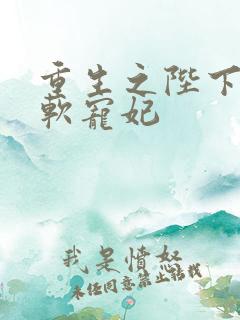 重生之陛下
软寵妃
我是情奴
未经同意禁止转载